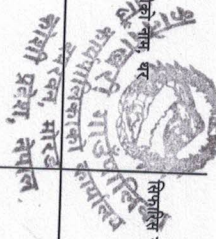 को नाम, थर
सिफारिस
गाउँपालिका
कार्यपालिकाको कार्यालय
मोरङ
कोशी प्रदेश, नेपाल